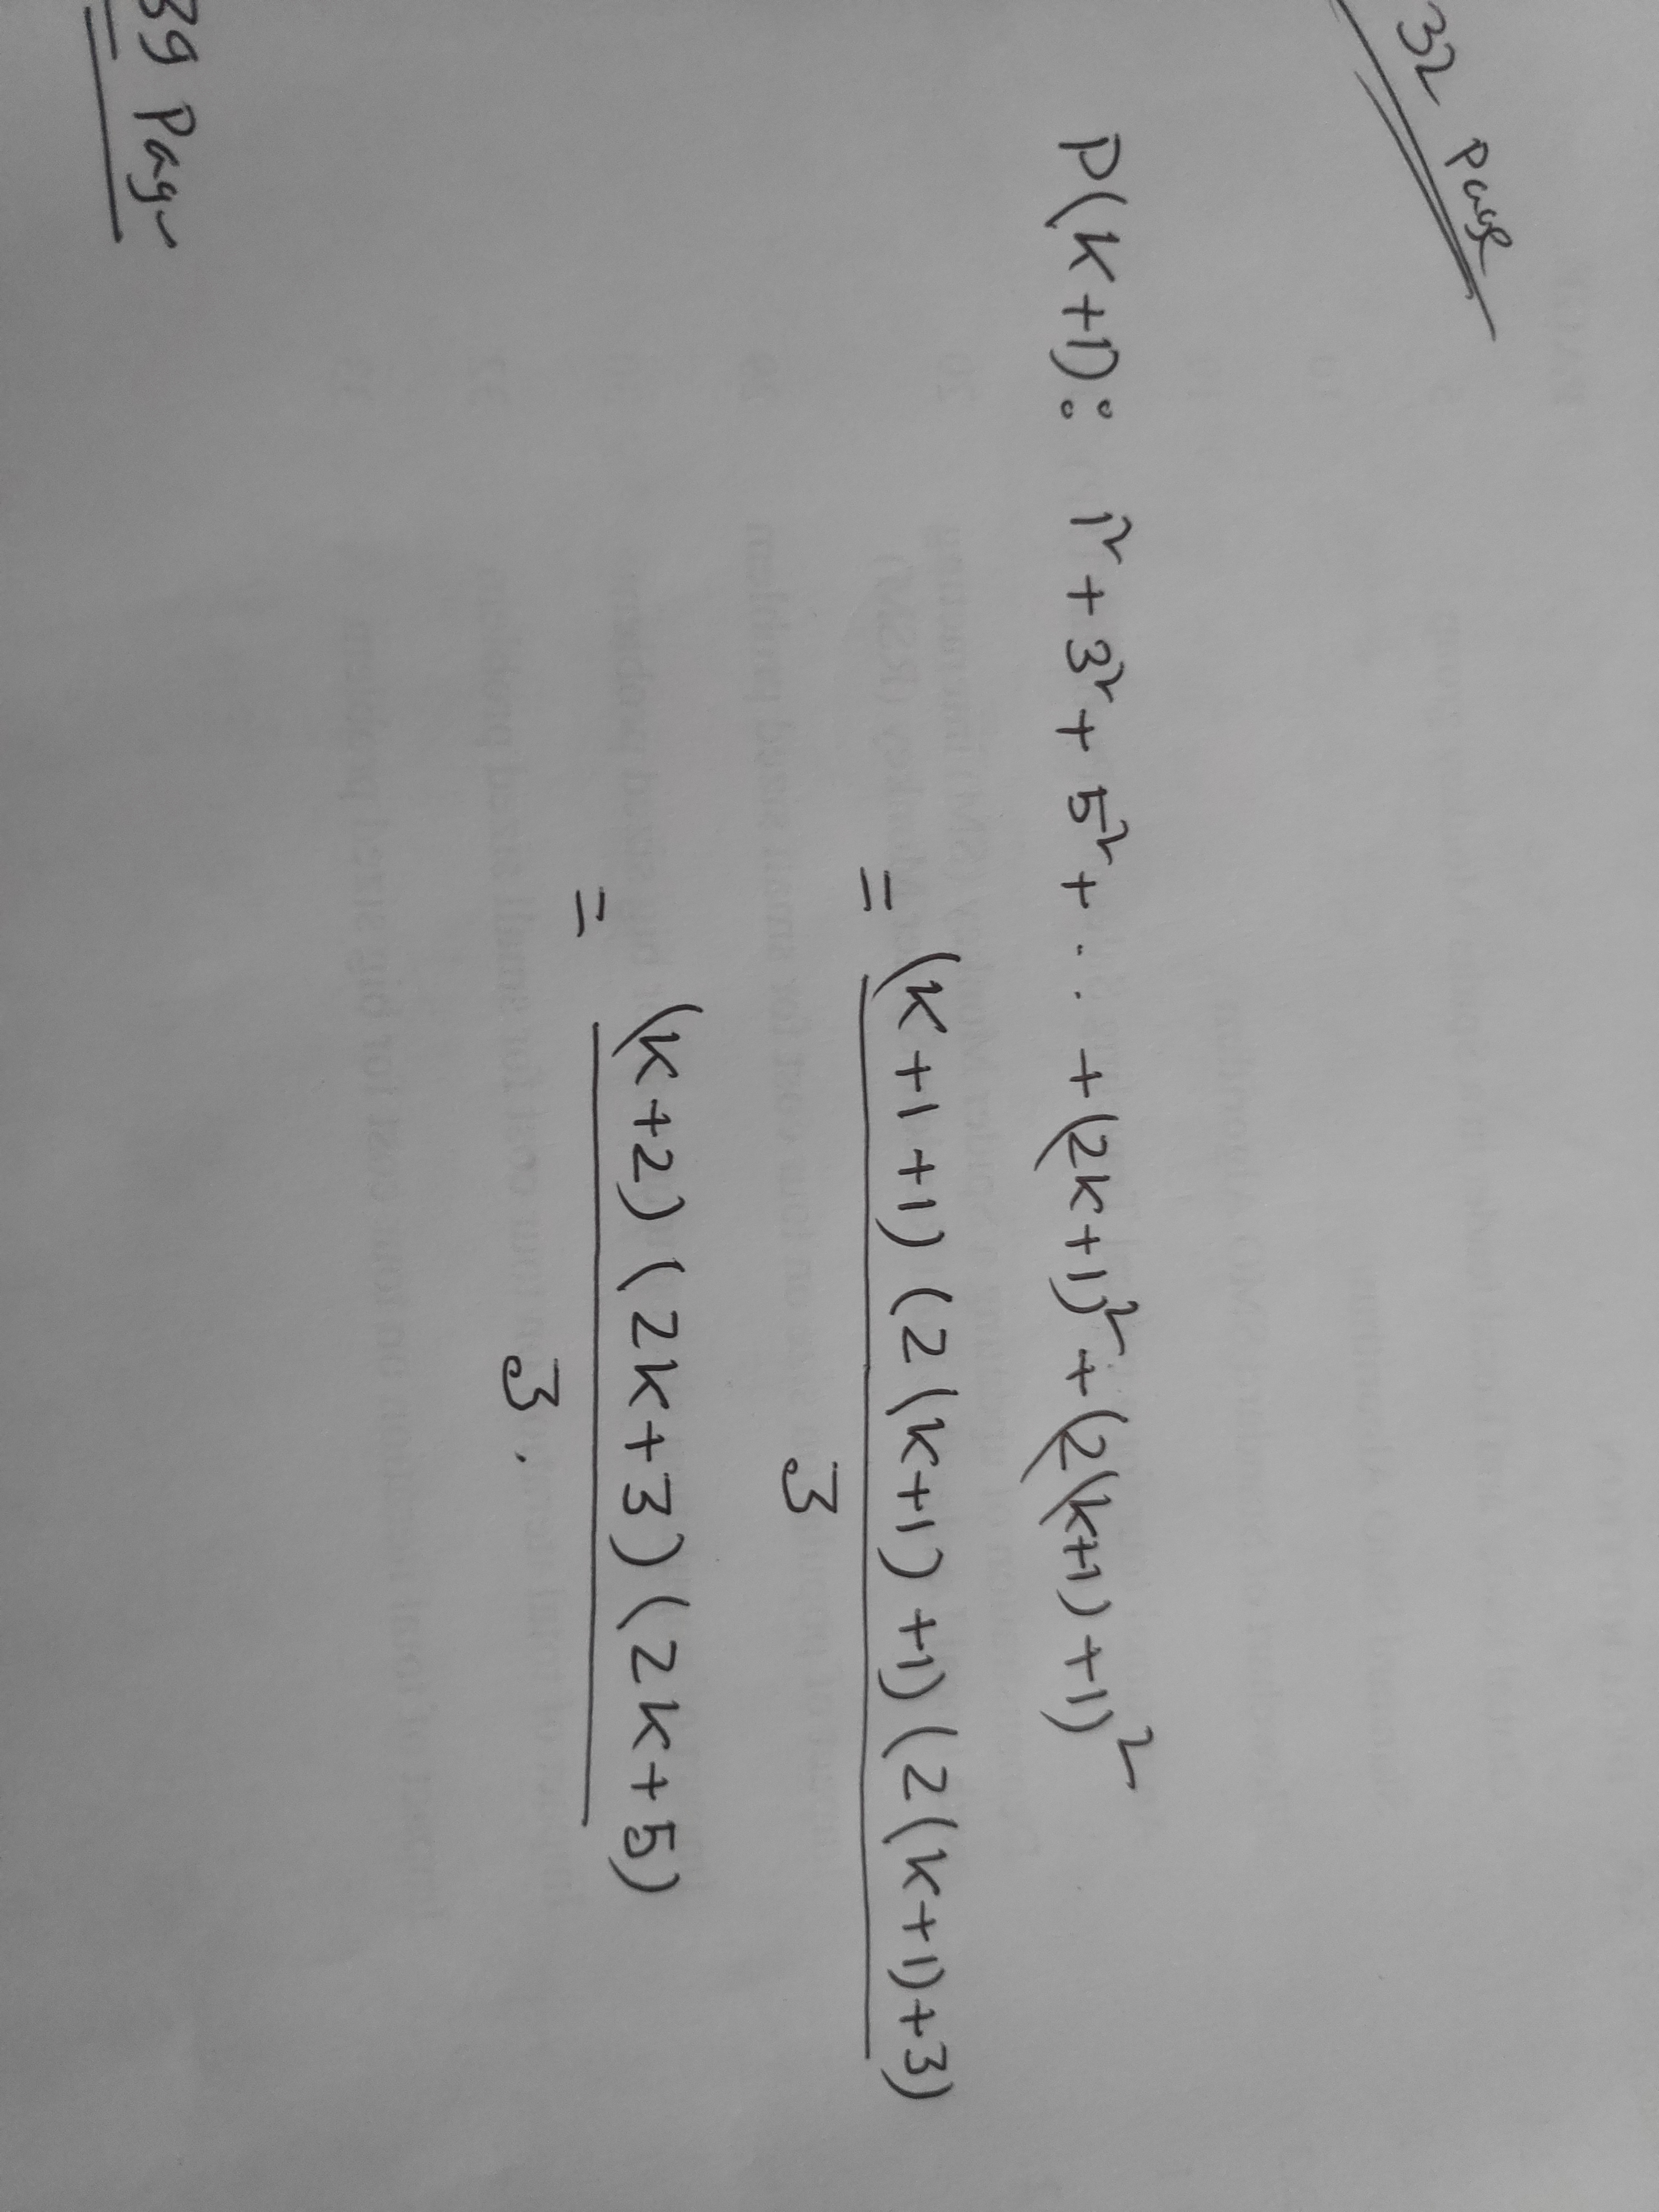 32 Page
P(k+1): 1² + 3² + 5² + ... + (2k+1)² + (2(k+1)+1)²
= (k+1+1)(2(k+1)+1)(2(k+1)+3)
3
= (k+2)(2k+3)(2k+5)
3.
39 Page